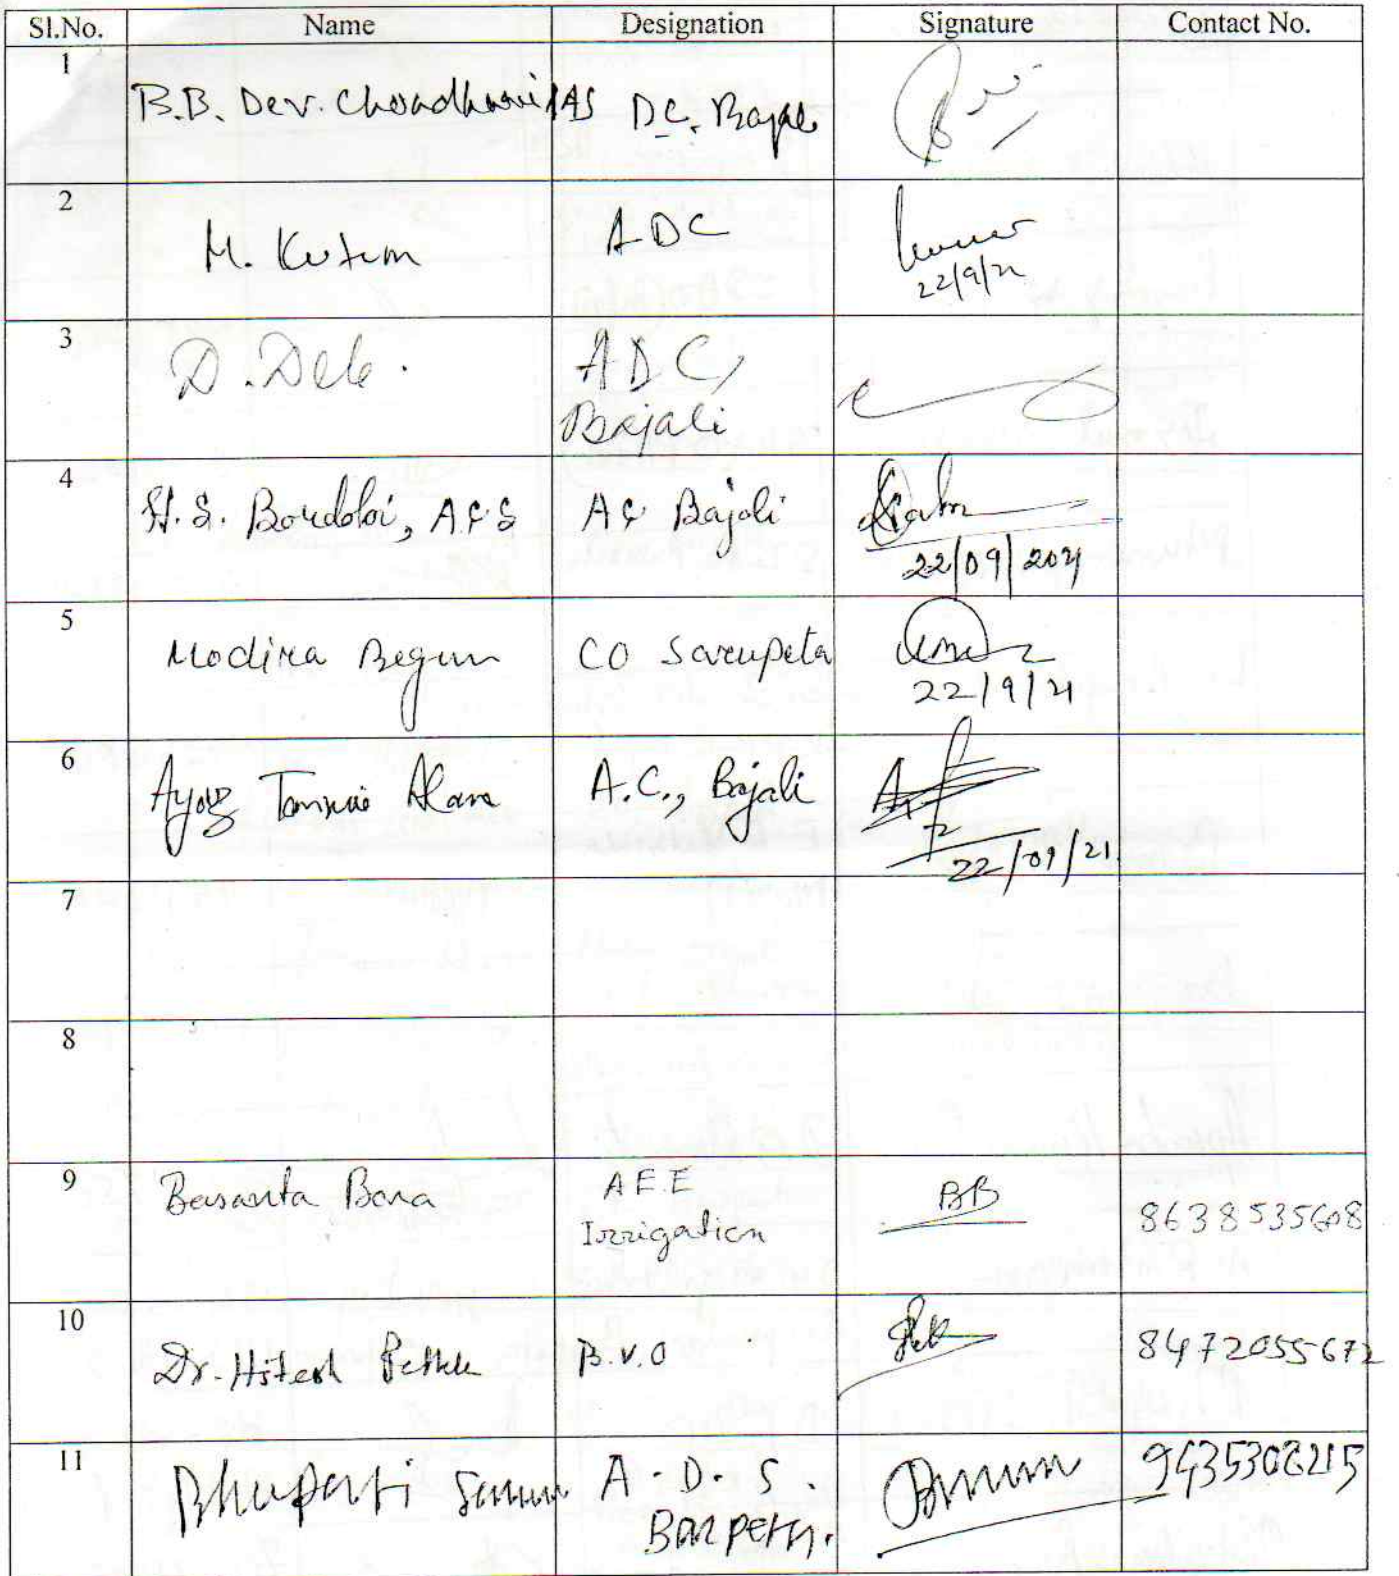 Sl.No. Name Designation Signature Contact No.
1
B.B. Dev. Choudhuri IAS DC, Bajali
2
M. Kutum ADC
22/9/21
3
D. Deb. ADC,
Bajali
4
H. S. Bordoloi, ACS AC Bajali
22/09/2021
5
Modira Begum CO Sarupeta
22/9/21
6
Ayaz Alam A.C., Bajali
22/09/21
7
8
9
Basanta Bora AEE BB 8638535608
Irrigation
10
Dr. Hitesh B.V.O 8472055672
11
Bhupati A.D.S. 9435308215
Barpeta.